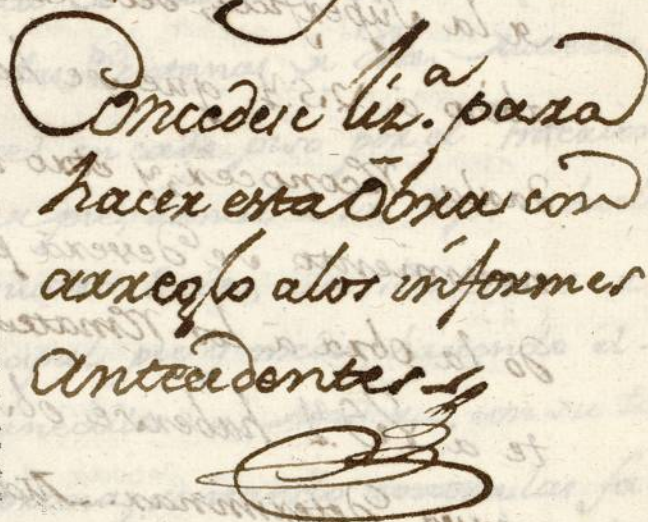 Concedese liz.ª para
hacer esta Obra con
arreglo alos informes
antecedentes